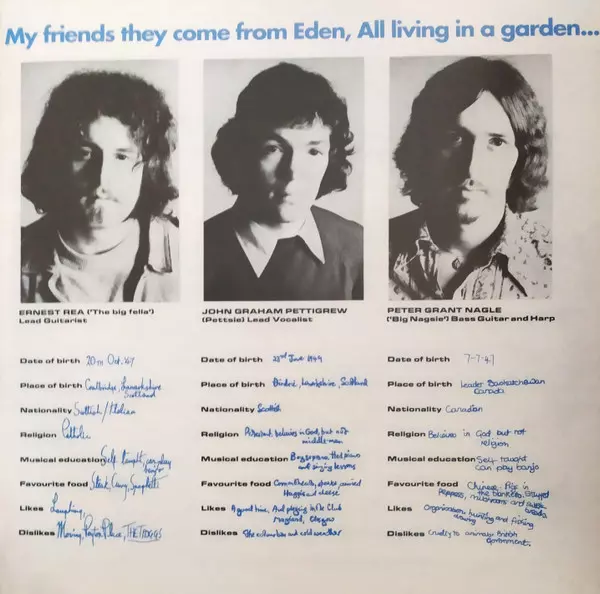 My friends they come from Eden, All living in a garden...
ERNEST REA ('The big fella')
Lead Guitarist
JOHN GRAHAM PETTIGREW
(Pettsie) Lead Vocalist
PETER GRANT NAGLE
('Big Nagsie') Bass Guitar and Harp
Date of birth 20TH Oct. '47
Place of birth Coatbridge, Lanarkshire,
Scotland
Nationality Scottish/Italian
Religion Catholic
Musical education Self taught, can play
banjo
Favourite food Steak, Curry, Spaghetti
Likes Laughing,
Dislikes Moving, THE TROGGS
Date of birth 22nd June 1949
Place of birth Lanarkshire, Scotland
Nationality Scottish
Religion Protestant, believes in God, but not
middle-man
Musical education Boy soprano, Had piano
and singing lessons
Favourite food
Haggis and cheese
Likes A good time, And playing in The Club
Maryland, Glasgow
Dislikes and cold weather
Date of birth 7-7-47
Place of birth Leader Saskatchewan
Canada
Nationality Canadian
Religion Believes in God but not
religion
Musical education Self taught
can play banjo
Favourite food Chinese. Pigs in
the blankets. Stuffed
Peppers, mushrooms and
Likes Organisation, hunting and fishing
drawing
Dislikes Cruelty to animals. British
Government.